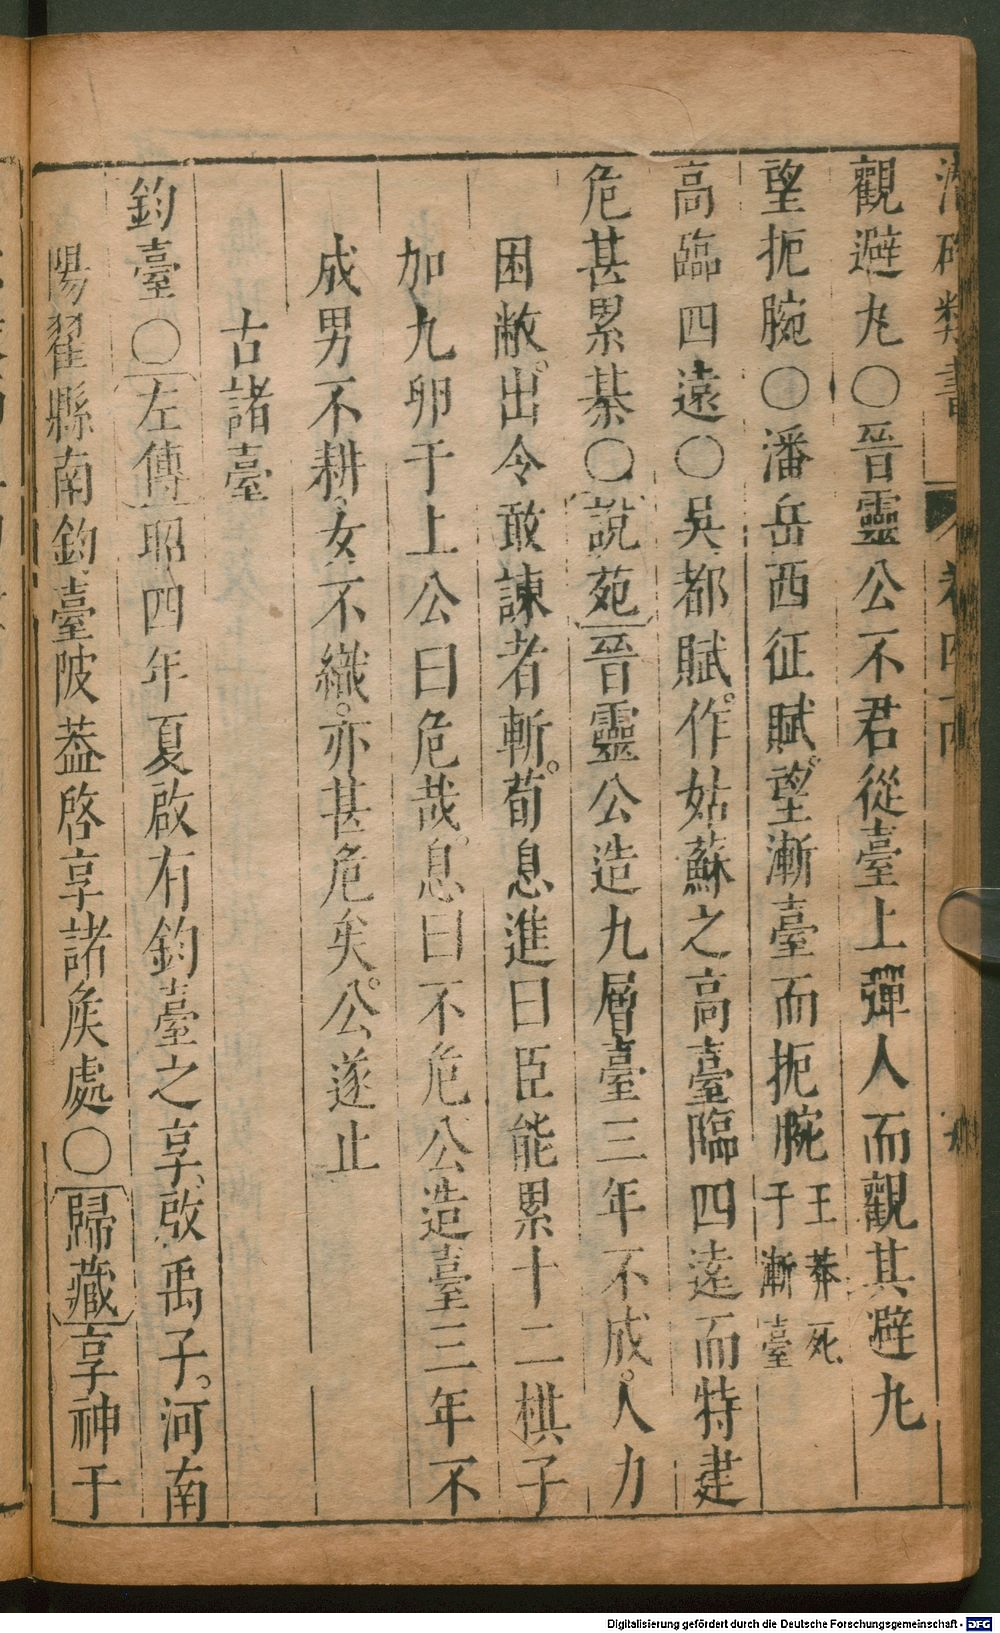 潛確類書 卷四十
觀避丸〇晉靈公不君從臺上彈人而觀其避丸
望扼腕〇潘岳西征賦望漸臺而扼腕王莽死于漸臺
高臨四遠〇吳都賦作姑蘇之高臺臨四遠而特建
危甚累棊〇說苑晉靈公造九層臺三年不成人力
困敝出令敢諫者斬荀息進曰臣能累十二棋子
加九卵于上公曰危哉息曰不危公造臺三年不
成男不耕女不織亦甚危矣公遂止
古諸臺
鈞臺〇左傳昭四年夏啟有鈞臺之享啟禹子河南
陽翟縣南鈞臺陂葢啓享諸矦處〇歸藏享神于
Digitalisierung gefördert durch die Deutsche Forschungsgemeinschaft - DFG